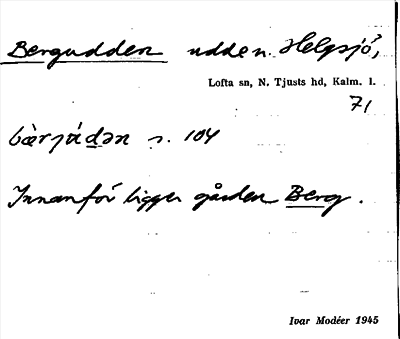 Bergudden udde n. Helgsjö,
Lofta sn, N. Tjusts hd, Kalm. l.
71
bærjúdən s. 104
Innanför ligger gården Berg.
Ivar Modéer 1945